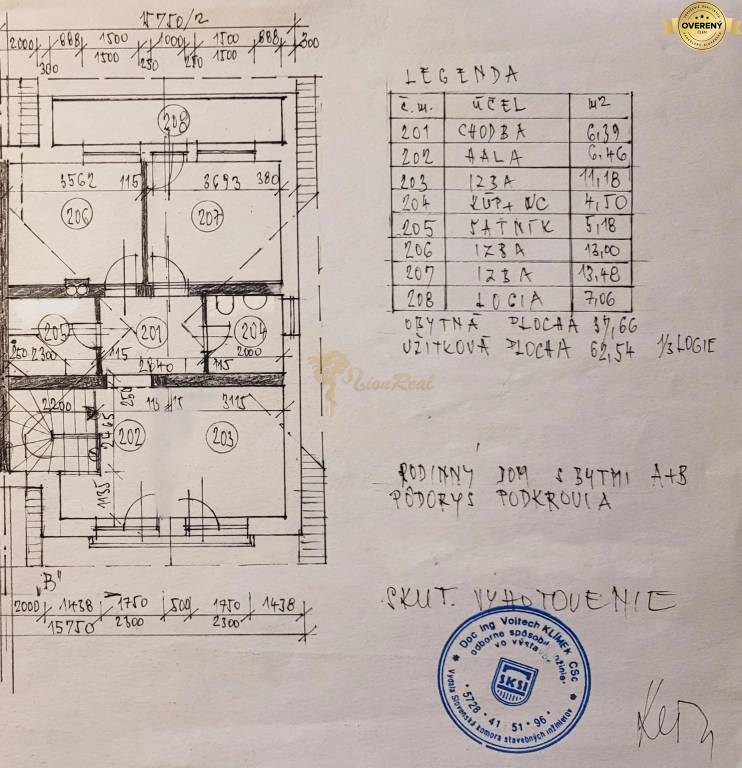 OVERENÝ
15750/2
2000 888 1500 1000 1500 888 300
300 1500 250 250 1500
208
3562 115 3693 380
206 207
205 201 204
250 2300 115 2840 115 2000
2200 250 115 115 3115
2465
202 203
1135
"B"
2000 1438 1750 500 1750 1438
2300 2300
15750
LEGENDA
č.m. ÚČEL m2
201 CHODBA 6,39
202 HALA 6,46
203 IZBA 11,18
204 KÚP+WC 4,50
205 ŠATNÍK 5,18
206 IZBA 13,00
207 IZBA 13,48
208 LOGIA 7,06
OBYTNÁ PLOCHA 37,66
UŽITKOVÁ PLOCHA 62,54 1/3 LOGIE
LionReal
RODINNÝ DOM S BYTMI A+B
PÔDORYS PODKROVIA
SKUT. VYHOTOVENIE
* Doc Ing Vojtech KLIMEK CSc *
odborne spôsobilý
vo výstavbe
SKSI
5728 · 41 51 · 96 ·
Vydala Slovenská komora stavebných inžinierov